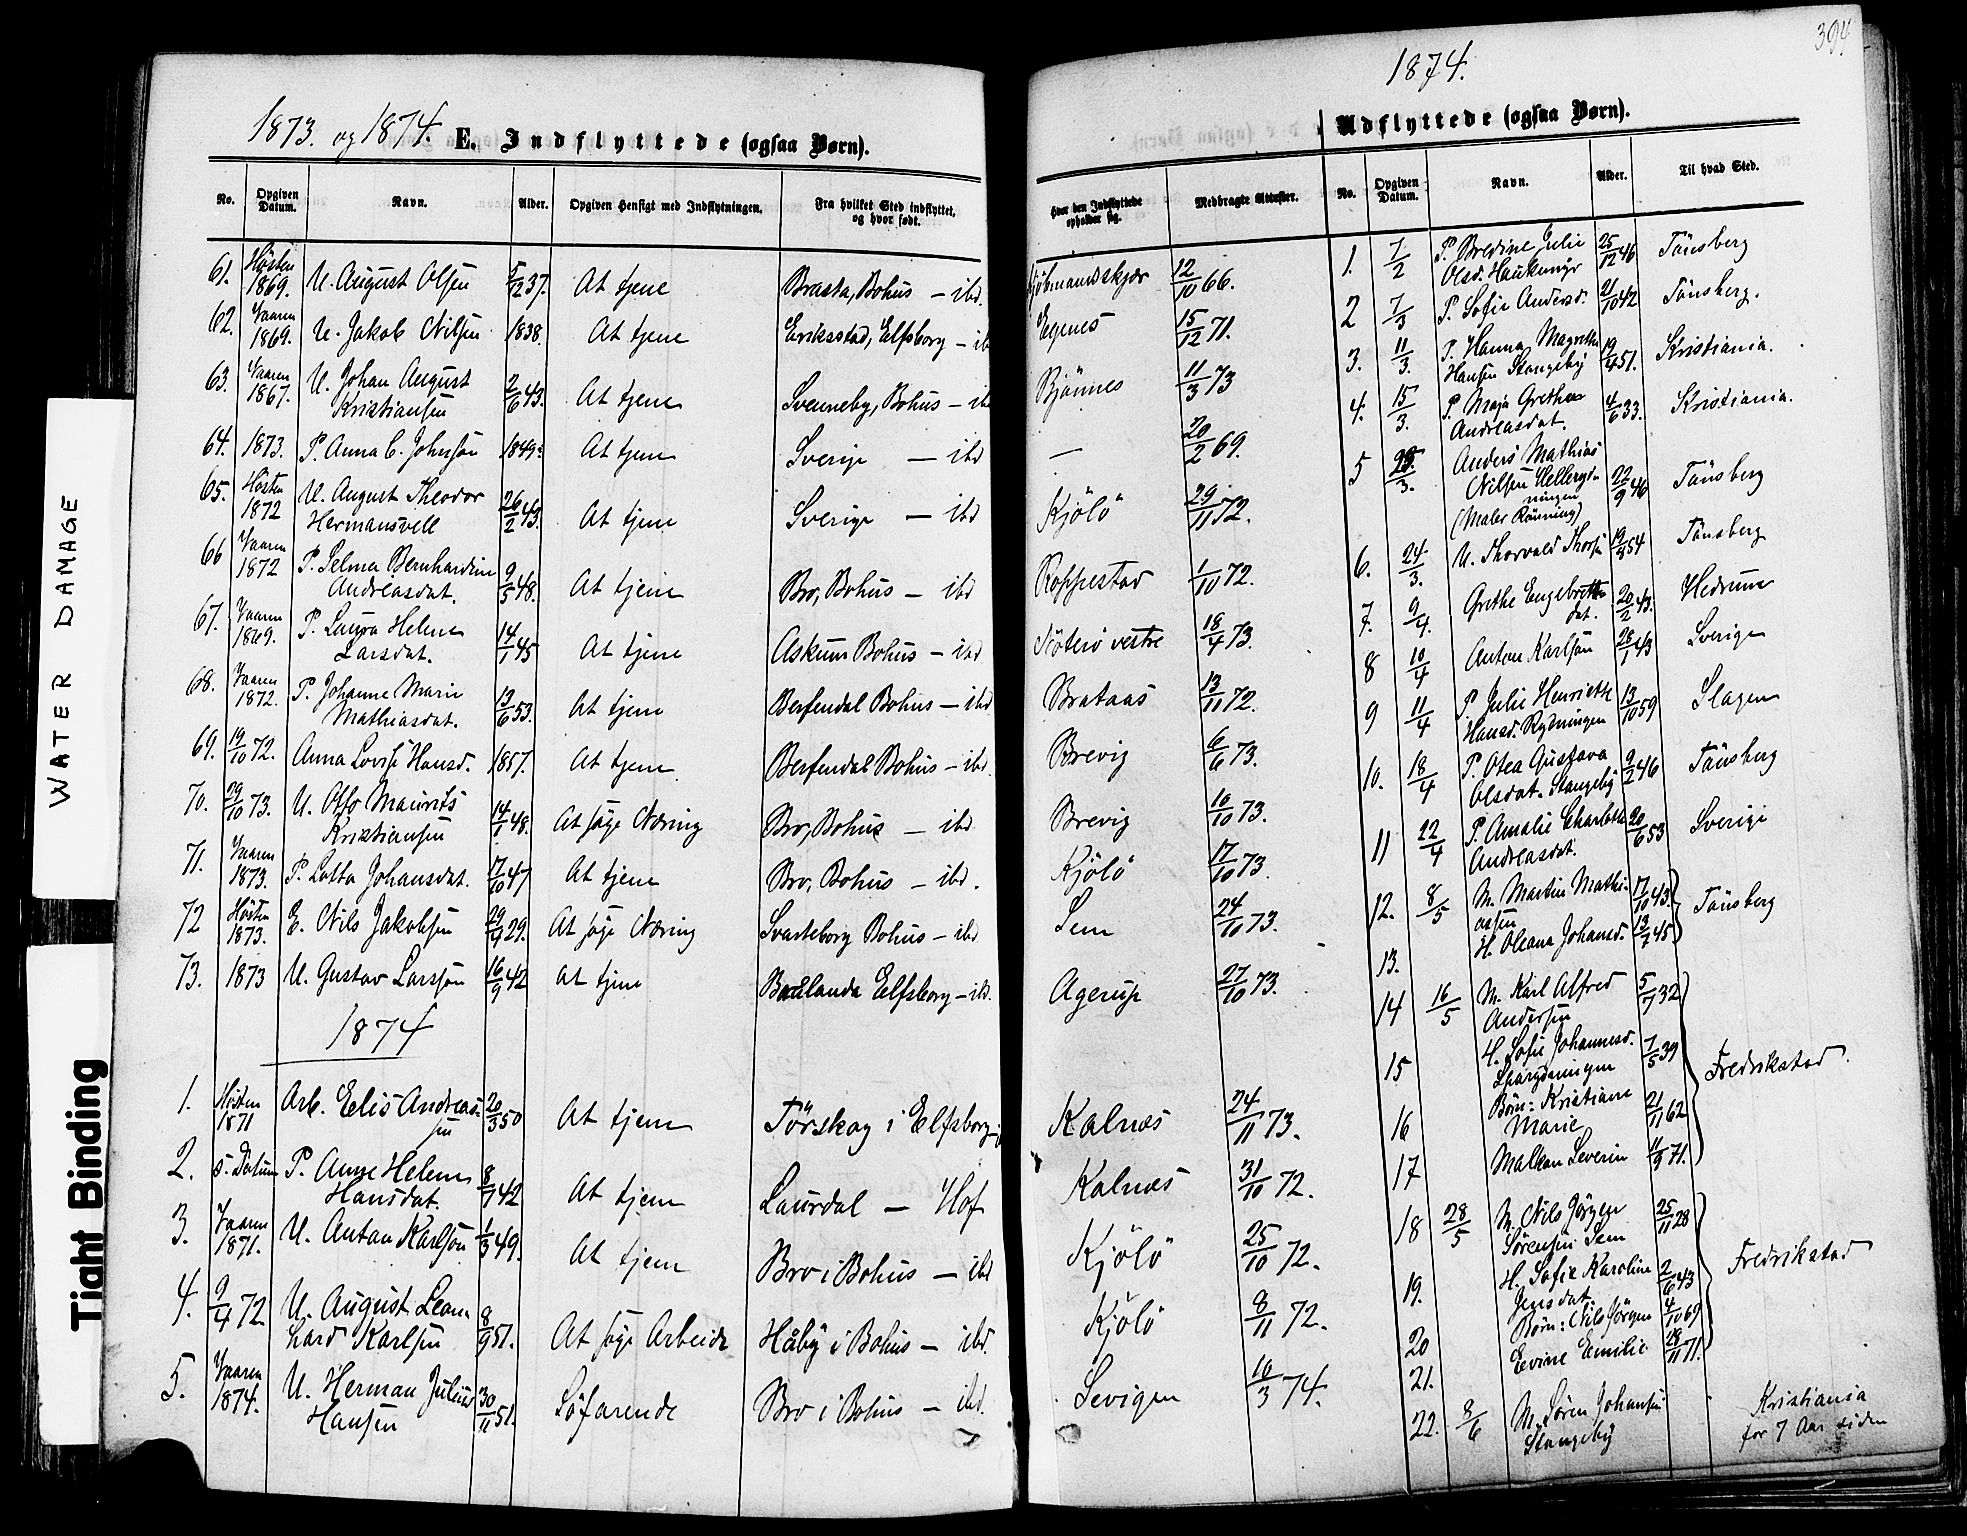 WATER DAMAGE
Tight Binding
1873. og 1874. E. Indflyttede (ogsaa Børn).
No. Opgiven Datum. Navn. Alder. Opgiven Hensigt med Indflytningen. Fra hvilket Sted indflyttet, og hvor født.
61. Høsten 1869. U. August Olsen 5/12 37. At tjene Brasta, Bohus – ibd.
62. Vaaren 1869. U. Jakob Nilsen 1838. At tjene Eriksstad, Elfsborg – ib
63. Vaaren 1867. U. Johan August Kristiansen 2/6 43. At tjene Svenneby, Bohus – ib
64. 1873. P. Anna C. Johnsen 1849. At tjene Sverige – ibd
65. Høsten 1872 U. August Theodor Hermansvell 26/2 43. At tjene Sverige – ibd
66 Vaaren 1872 P. Selma Bernhardine Andreasdat. 9/5 48. At tjene Bro, Bohus – ibd
67. Vaaren 1869. P. Laura Helene Larsdat. 14/1 45 At tjene Askum Bohus – ibd
68. Vaaren 1872. P. Johanne Marie Mathiasdat. 13/6 53. At tjene Berfendal Bohus – ibd
69. 19/10 72. Anna Lovise Hansd. 1857. At tjene Berfendal Bohus – ibd.
70. 29/10 73. U. Otto Maurits Kristiansen 14/1 48. At søge Næring Bro, Bohus – ibd
71. Vaaren 1873. P. Lotta Johansdat. 17/10 47 At tjene Bro, Bohus – ibd.
72 Høsten 1873. E. Nils Jakobsen 29/4 29. At søge Næring Svarteborg Bohus – ibd
73. 1873 U. Gustav Larsson 16/9 42 At tjene Elfsborg – ib.
1874
1. Høsten 1871 Arb. Elis Andreassen 20/3 50 At tjene Törskog i Elfsborg
2. s. Datum P. Anne Helene Hansdat. 8/7 42 At tjene Laurdal – Hof
3. Vaaren 1871. U. Anton Karlson 1/3 49. At tjene Bro i Bohus – ibd
4. 9/4 72 U. August Leonhard Karlsen 8/9 51. At søge Arbeide Håby i Bohus – ibd.
5. Vaaren 1874. U. Herman Julius Hansen 30/11 51. Söfarende Bro i Bohus – ibd.
394
1874.
Hvor den Indflyttede opholder sig. Medbragte Attester.
12/10 66.
Egenes 15/12 71.
Bjönnes 11/3 73
– 20/2 69.
Kjölö 29/11 72.
Roppestad 1/10 72.
Nöterö vestre 18/4 73.
Brataas 13/11 72.
Brevig 6/6 73.
Brevig 16/10 73.
Kjölö 17/10 73.
Sem 24/10 73.
Agerup 27/10 73.
Kalnæs 24/11 73.
Kalnæs 31/10 72.
Kjölö 25/10 72.
Kjölö 8/11 72.
Sevigen 10/3 74.
Udflyttede (ogsaa Børn).
No. Opgiven Datum. Navn. Alder. Til hvad Sted.
1. 7/2 P. Bredine Julie Olsd. 25/12 46 Tönsberg
2 7/3 P. Sofie Andersd. 21/10 42 Tönsberg.
3. 11/3. P. Hanna Magrethe Hansen Stangeby 19/4 51. Kristiania.
4. 15/3. P. Maja Grethe Andreasdat. 4/6 33. Kristiania.
5 /3. Anders Mathias Nilsen (Maler Rönning) 22/9 46 Tönsberg
6. 24/3. U. Thorvald Thorsen 19/8 54 Tönsberg
7. 9/4. Grethe Engebrethsdat. 20/2 43. Hedrum
8 10/4 Anton Karlson 28/1 43 Sverige
9 11/4 P. Julie Henriette Hansd. Rydningen 13/10 59 Slagen
10. 18/4 P. Otea Gustava Olsdat. Stangeby 9/2 46 Tönsberg
11 22/4 P. Amalie Charlotte Andreasdat. 20/6 53 Sverige
12. 8/5 M. Martin Mathiassen 17/10 43. Tönsberg
13. H. Oleana Johansd. 13/7 45
14 16/5 M. Karl Alfred Andersen 5/7 32 Fredrikstad.
15 H. Sofie Johannesd. 7/5 39
16 Børn: Kristiane Marie 21/11 62
17 Malkon Severin 4/9 71.
18 28/5 M. Nils Jørgen Sörensen Sem 25/11 28 Fredrikstad
19. H. Sofie Karoline Jensdat. 2/6 43
20 Børn: Nils Jörgen 4/10 69
21. Evine Emilie 28/11 71.
22. 8/6 M. Sören Johansen Stangeby Kristiania for 7 Aar siden